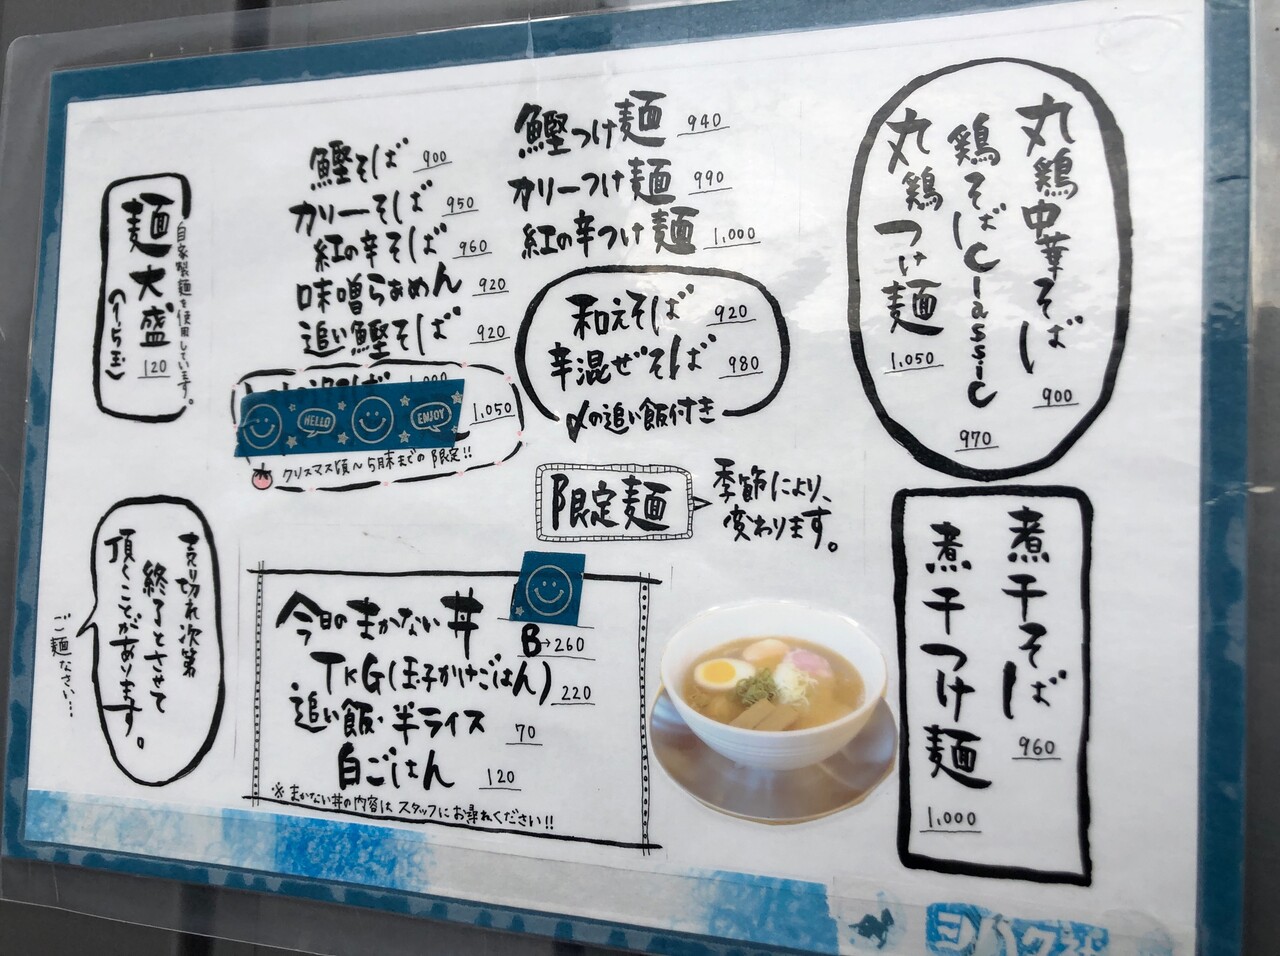 丸鶏中華そば 900
鶏そばClassic 970
丸鶏つけ麺 1,050
煮干そば 960
煮干つけ麺 1,000
鰹つけ麺 940
カリーつけ麺 990
紅の辛つけ麺 1,000
和えそば 920
辛混ぜそば 980
〆の追い飯付き
限定麺
季節により、
変わります。
鰹そば 900
カリーそば 950
紅の辛そば 960
味噌らぁめん 920
追い鰹そば 920
1,050
HELLO
ENJOY
クリスマス頃〜5月末までの限定!!
今日のまかない丼
B→260
TKG(玉子かけごはん) 220
追い飯・半ライス 70
白ごはん 120
※まかない丼の内容はスタッフにお尋ねください!!
自家製麺を使用しています。
麺大盛 120
売り切れ次第
終了とさせて
頂くことがあります。
ご麺なさい…